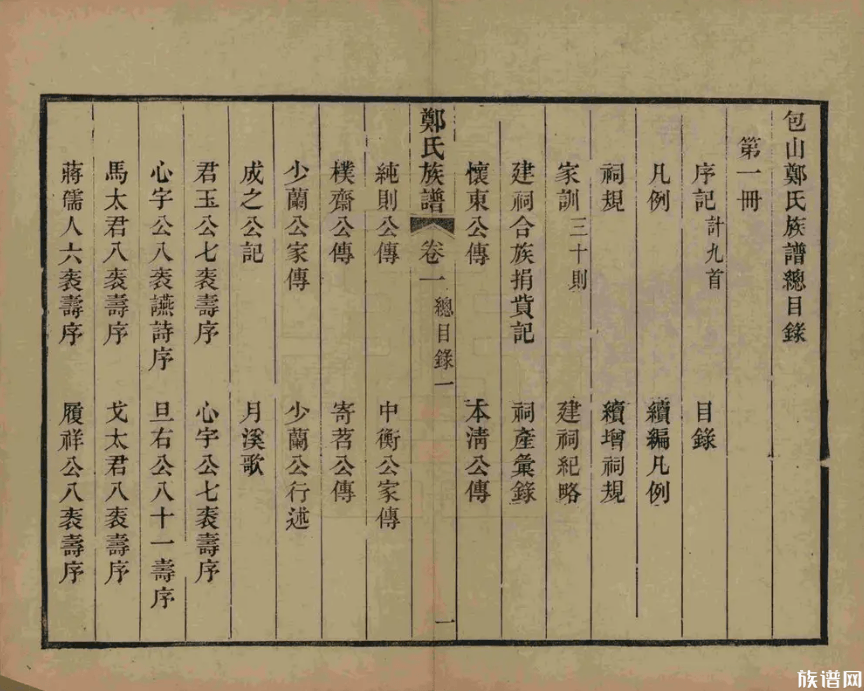 包山鄭氏族譜總目錄
第一冊
序記計九首　目錄
凡例　續編凡例
祠規　續增祠規
家訓三十則　建祠紀略
建祠合族捐貲記　祠產彙錄
懷東公傳　本清公傳
鄭氏族譜　卷一　總目錄一　一
純則公傳　中衡公家傳
樸齋公傳　寄茗公傳
少蘭公家傳　少蘭公行述
成之公記　月溪歌
君玉公七袠壽序　心宇公七袠壽序
心宇公八袠讌詩序　旦右公八十一壽序
馬太君八袠壽序　戈太君八袠壽序
蔣孺人六袠壽序　履祥公八袠壽序
族谱网